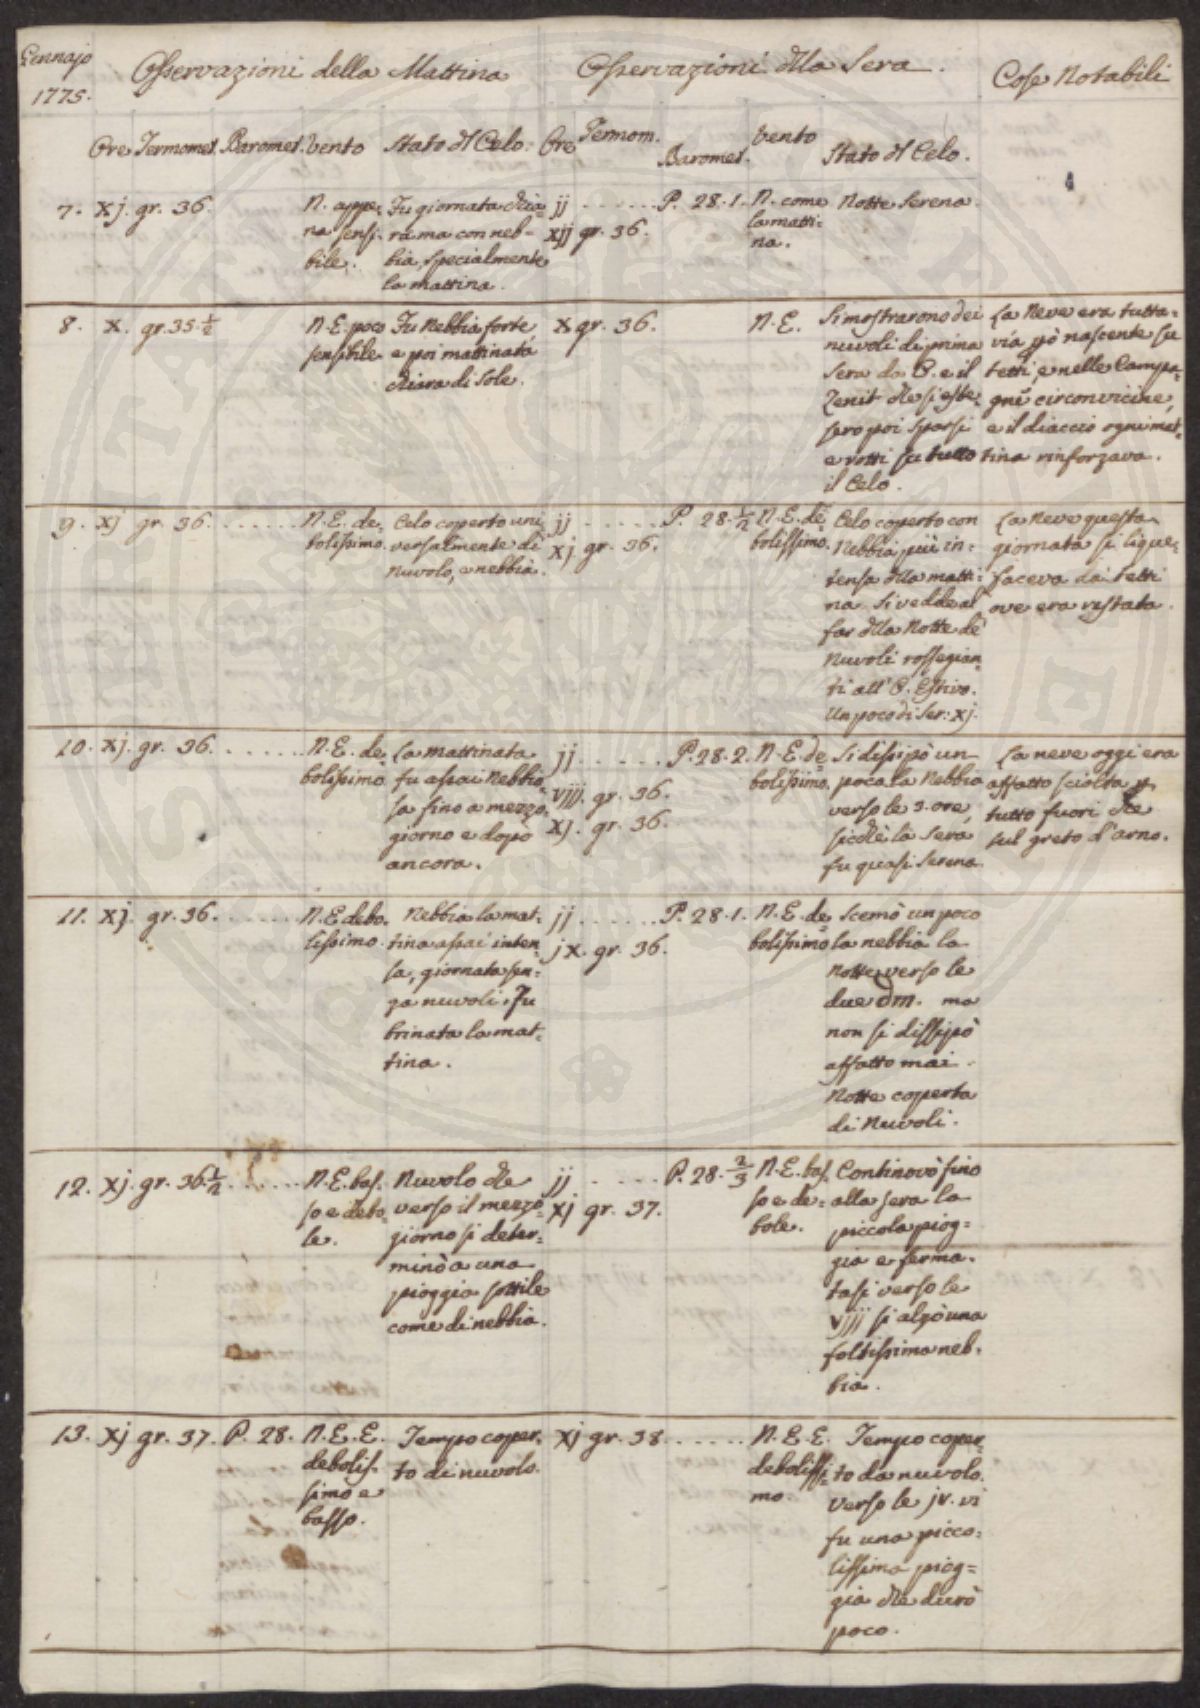 Gennajo
1775.
Osservazioni della Mattina
Osservazioni dlla Sera.
Cose Notabili
Ore Termomet. Baromet. Vento Stato dl Celo. Ore Termom. Baromet. Vento Stato dl Celo.
7. xj. gr. 36.
N. appe=
na sensi=
bile.
Fu giornata chia=
ra ma con neb=
bia, specialmente
la mattina.
jj . . . . . . P. 28. 1.
xjj gr. 36.
N. come
la matti=
na.
Notte Serena
8. x. gr. 35. 1/2
N.E. poco
sensibile
Fu Nebbia forte
e poi mattinata
chiara di sole.
x gr. 36.
N.E.
Si mostrarono dei
nuvoli di prima
sera da P. e il
Zenit che si este=
sero poi sparsi
e rotti su tutto
il Celo.
La Neve era tutta=
via pò nascente su
tetti, e nelle Campa=
gne circonvicine,
e il diaccio ogni mat=
tina rinforzava.
9. xj gr. 36. . . . . . .
N.E. de=
bolissimo.
Celo coperto uni=
versalmente di
nuvolo, e nebbia.
jj . . . . . . P. 28. 1/2
xj gr. 36.
N.E. de=
bolissimo.
Celo coperto con
Nebbia più in=
tensa dlla matti=
na. Si vedde al
far dlla Notte de'
Nuvoli rossegian=
ti all' P. Estivo.
Un poco di Ser: xj.
La Neve questa
giornata si lique=
faceva dai tetti
ove era restata.
10. xj. gr. 36. . . . . . .
N.E. de=
bolissimo
La mattinata
fu assai Nebbio=
sa fino a mezzo
giorno e dopo
ancora.
jj . . . . . . P. 28. 2.
vjjj. gr. 36.
xj. gr. 36.
N.E. de=
bolissimo.
Si dissipò un
poca la Nebbia
verso le 3. ore,
sicchè la Sera
fu quasi Serena
La neve oggi era
affatto sciolta p
tutto fuori che
sul greto d'arno.
11. xj. gr. 36. . . . . . .
N.E. debo=
lissimo.
Nebbia la mat=
tina assai inten=
sa, giornata sen=
za nuvoli. Fu
brinata la mat=
tina.
jj . . . . . . P. 28. 1.
jx. gr. 36.
N.E. de=
bolissimo
Scemò un poco
la nebbia la
Notte verso le
due dm. ma
non si dissipò
affatto mai.
Notte coperta
di Nuvoli.
12. xj. gr. 36. 1/2 . . . . . .
N.E. bas=
so e debo=
le.
Nuvolo che
verso il mezzo=
giorno si deter=
minò a una
pioggia sottile
come di nebbia.
jj . . . . P. 28. 2/3
xj gr. 37.
N.E. bas=
so e de=
bole.
Continovò fino
alla sera la
piccola piog=
gia e ferma=
tasi verso le
vjjj si alzò una
foltissima neb=
bia.
13. xj gr. 37. P. 28.
N.E.E.
debolis=
simo e
basso.
Tempo coper=
to di nuvolo.
xj gr. 38 . . . . . .
N.E.E.
debolissi=
mo
Tempo coper=
to da nuvolo.
verso le jv. vi
fu una picco=
lissima piog=
gia che durò
poco.